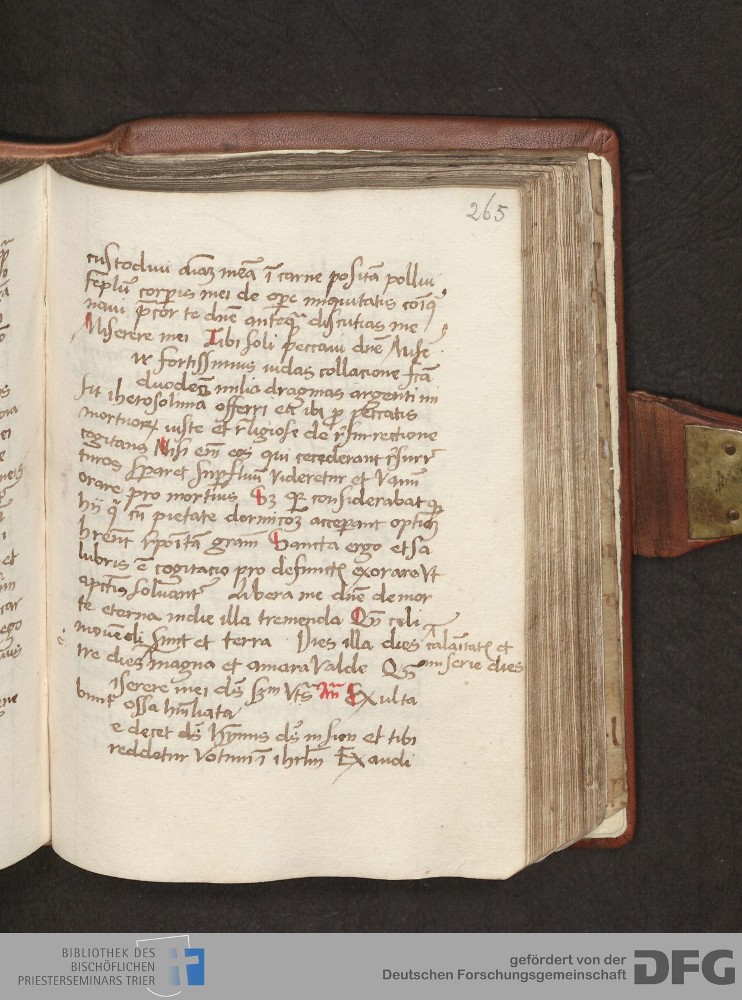 265
custodiui aīaȝ meā ī carne positā pollui
tēplū corpris mei de opē iniquitatis
naui p̄cor te dn̄e anteq̄ discutias me
Miserere mei Tibi soli peccaui dn̄e Mise
ir fortissimus iudas collacione fc̄ā
duodecī milia dragmas argenti mi
sit iherosolima offerri etc ibi p̄ peccatis
mortuorꝝ iuste et religiose de resurrectione
cogitans Nisi em̄ eos qui ceciderant resurr
turos speraret supfluū videretur et vanū
orare pro mortuis Sȝ considerabat
hij q̄ cū pietate dormicōȝ acceperant optiā
hrēnt repoītā grām Sancta ergo et sa
lubris ē cogitacio pro defunctꝭ exorare vt
a pctīs soluantr Libera me dn̄e de mor
te eterna in die illa tremenda Qn̄ celi
mouēdi sunt et terra Dies illa dies calaītatꝭ et
miserie dies
tre dies magna et amara valde Qn̄
iserere mei ds̄ Sm̄ Vts̄ An̄ Exulta
bunt ossa hūiliata
e decet ds̄ hymnus ds̄ in sion et tibi
reddetur votum ī ihrlm̄ Exaudi
BIBLIOTHEK DES
BISCHÖFLICHEN
PRIESTERSEMINARS TRIER
gefördert von der
Deutschen Forschungsgemeinschaft
DFG